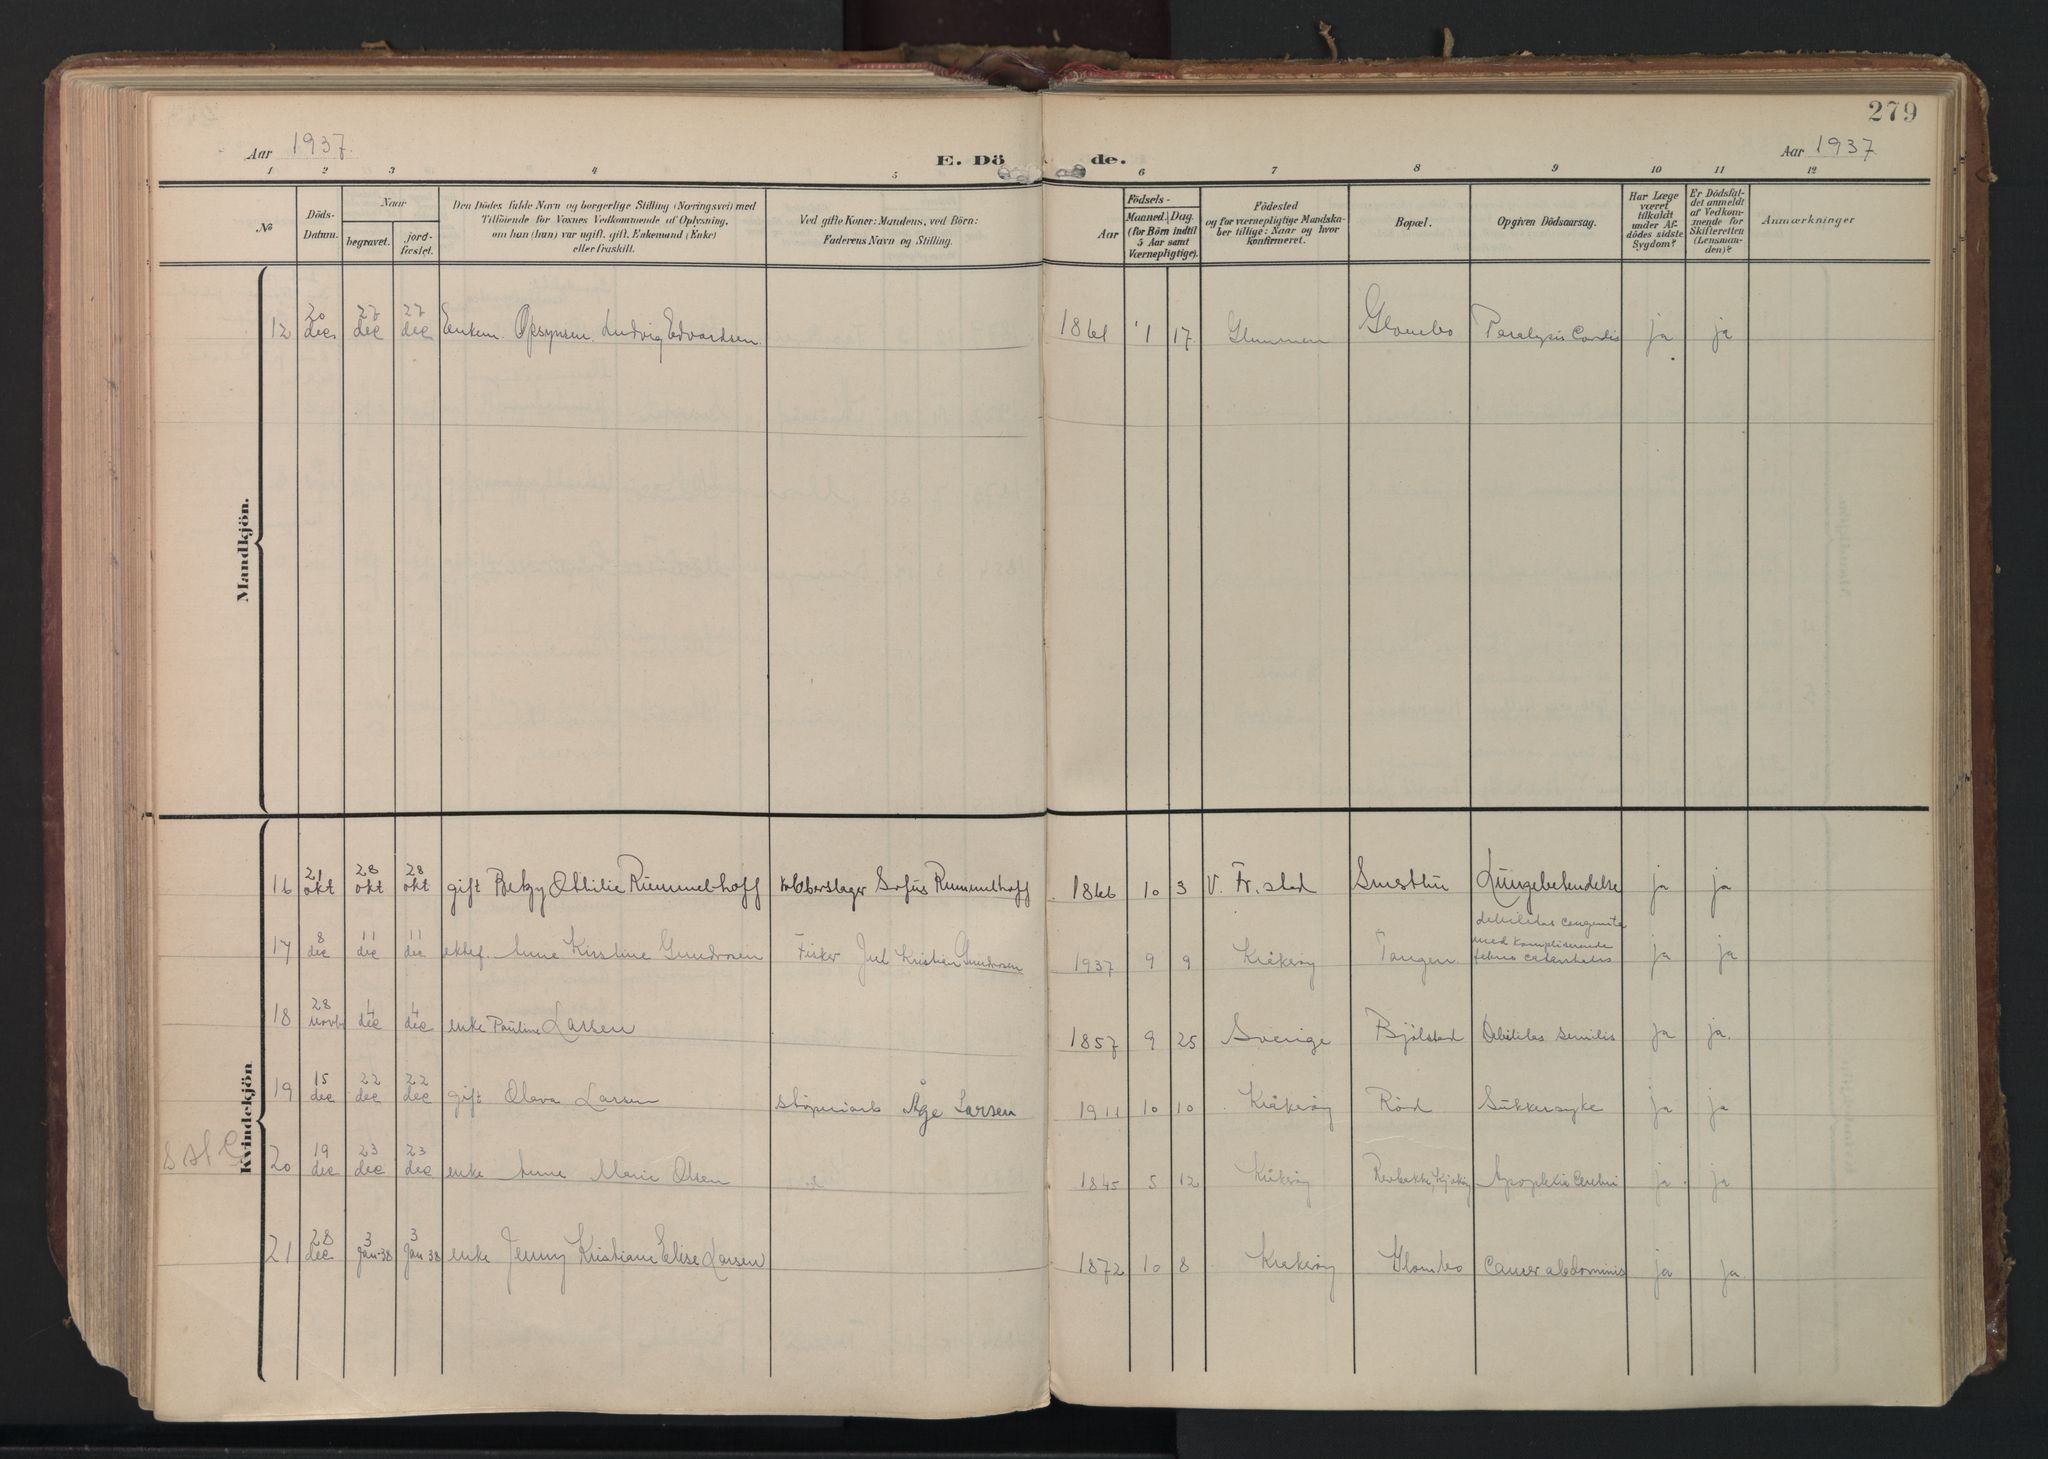 279
Aar 1937.
E. Dö de.
Aar 1937
1 2 3 4 5 6 7 8 9 10 11 12
No
Döds-Datum.
Naar
begravet.
jord-fæstet.
Den Dödes fulde Navn og borgerlige Stilling (Næringsvei) med
Tilföiende for Voxnes Vedkommende af Oplysning,
om han (hun) var ugift, gift, Enkemand (Enke)
eller fraskilt.
Ved gifte Koner: Mandens, ved Börn:
Faderens Navn og Stilling.
Födsels-
Aar
Maaned. Dag.
(for Börn indtil
5 Aar samt
Værnepligtige).
Födested
og for værnepligtige Mandska-
ber tillige: Naar og hvor
konfirmeret.
Bopæl.
Opgiven Dödsaarsag.
Har Læge
været
tilkaldt
under Af-
dödes sidste
Sygdom?
Er Dödsfal-
det anmeldt
af Vedkom-
mende for
Skifteretten
(Lensman-
den)?
Anmærkninger
Mandkjön.
12 20 dec 27 dec 27 dec Enkem. Opsynsm. Ludvig Edvardsen. 1861 1 17 Glemmen Glombo Paralysis Cordis ja ja
Kvindekjön
16 21 okt 28 okt 28 okt gift Betzy Othilie Rummelhoff kobberslager Sofus Rummelhoff 1866 10 3 V. Fr. stad Smertu Lungebetendelse ja ja
17 8 dec 11 dec 11 dec ektef. Anne Kirstine Gundersen Fisker Jul Kristian Gundersen 1937 9 9 Kråkerøy Tangen debilitas congenita med kompliserende febris catarrhalis ja ja
18 28 novb 4 dec 4 dec enke Pauline Larsen 1857 9 25 Sverige Bjølstad Debilitas senilis ja ja.
19 15 dec 22 dec 22 dec gift Olava Larsen støperiarb Åge Larsen 1911 10 10 Kråkerøy Rød Sukkersyke ja ja
20 19 dec 23 dec 23 dec enke Anne Marie Olsen 1845 5 12 Kråkerøy Revbakke, Kjøkøy Apoplexia Cerebri ja ja
21 28 dec 3 jan-38 3 jan 38 enke Jenny Kristiane Elise Larsen 1872 10 8 Kråkerøy Glombo Cancer abdominis ja ja